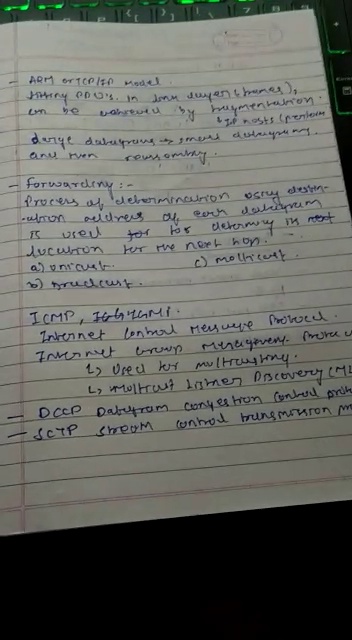 - ARM or TCP/IP model.
fitting PDU's in link layer (frames),
can be achieved by fragmentation.
↳ IP hosts (perform
large datagrams → small datagrams.
and then reassembly.
- Forwarding :-
Process of determination using destin-
-ation address of each datagram
is used for to determine its next
location for the next hop.
a) unicast. c) multicast.
b) broadcast.
ICMP, IGMP.
Internet Control Message Protocol.
Internet Group Management Protoc
↳ Used for multicasting.
↳ Multicast Listener Discovery (ML
- DCCP Datagram congestion control prot
- SCTP Stream control transmission